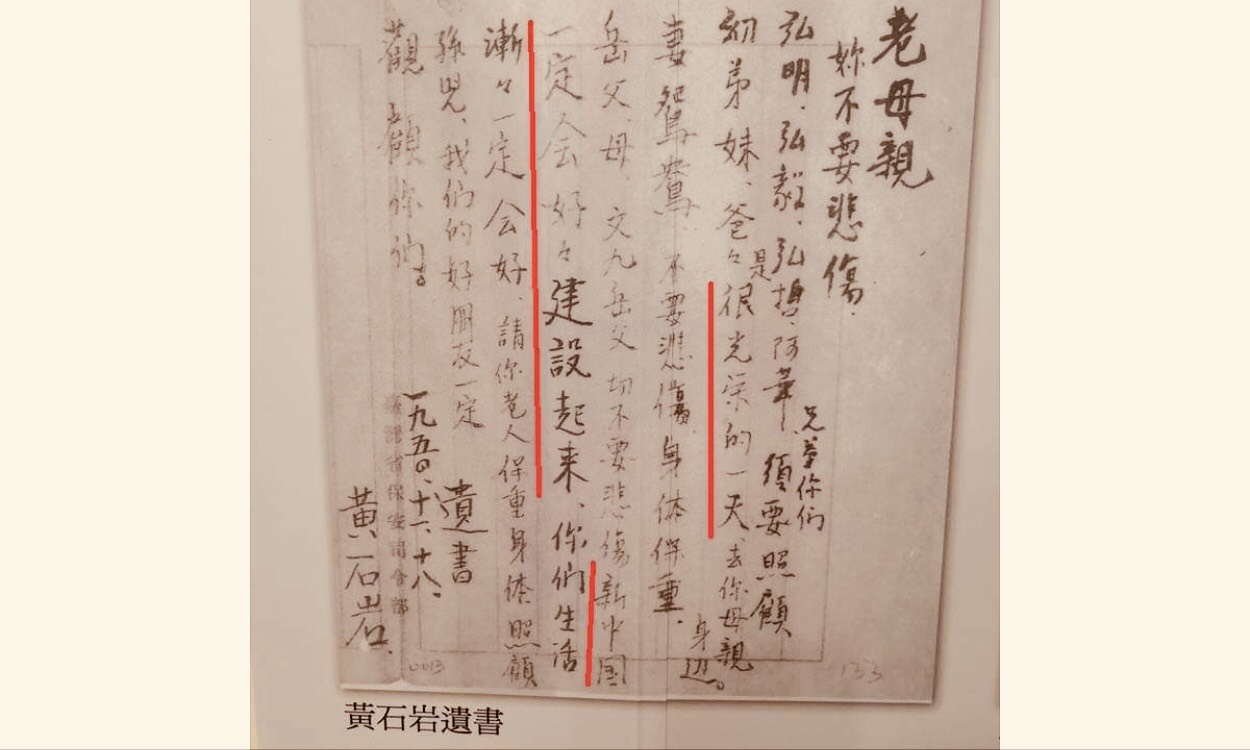 老母親
妳不要悲傷.
弘明.弘毅.弘哲.阿華、兄弟你們須要照顧
幼弟妹、爸々是很光栄的一天、去你母親身辺。
妻鴛鴦、不要悲傷身体保重.
岳父、母、文九岳父切不要悲傷新中国
一定会好々建設起来、你們生活
漸々一定会好、請你老人保重身体照顧
孫児、我们的好朋友一定
觀顧你们。
遺書
一九五〇、十一、十八、
臺灣省保安司令部
黃石岩.
0013
133
黃石岩遺書